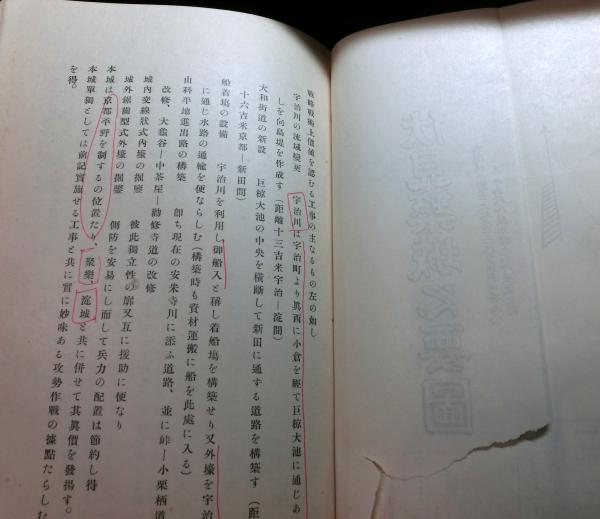 戰略戰術上價値を認むる工事の主なるもの左の如し
宇治川の流域變更　宇治川は宇治町より眞西に小倉を經て巨椋大池に通じあ
しを向島堤を作成す（距離十三吉米宇治―淀間）
大和街道の新設　巨椋大池の中央を橫斷して新田に通ずる道路を構築す（距
十六吉米京都―新田間）
船着場の設備　宇治川を利用し御船入と稱し着船場を構築せり又外壕を宇治
に通じ水路の通輸を便ならしむ（構築時も資材運搬に船を此處に入る）
山科平地進出路の構築　卽ち現在の安米寺川に添ふ道路、並に峠―小栗栖道
改修、大龜谷―中茶屋―勸修寺道の改修
城內交線狀式內壕の掘鑿　彼此獨立性の廓又互に援助に便なり
城外鋸齒型式外壕の掘鑿　側防を安易にし而して兵力の配置は節約し得
本城は京都平野を制するの位置たり、聚樂、淀城と共に併せて其眞價を發揚す。
本城單獨としては前記實施せる工事と共に實に妙味ある攻勢作戰の據點たらした
を得。